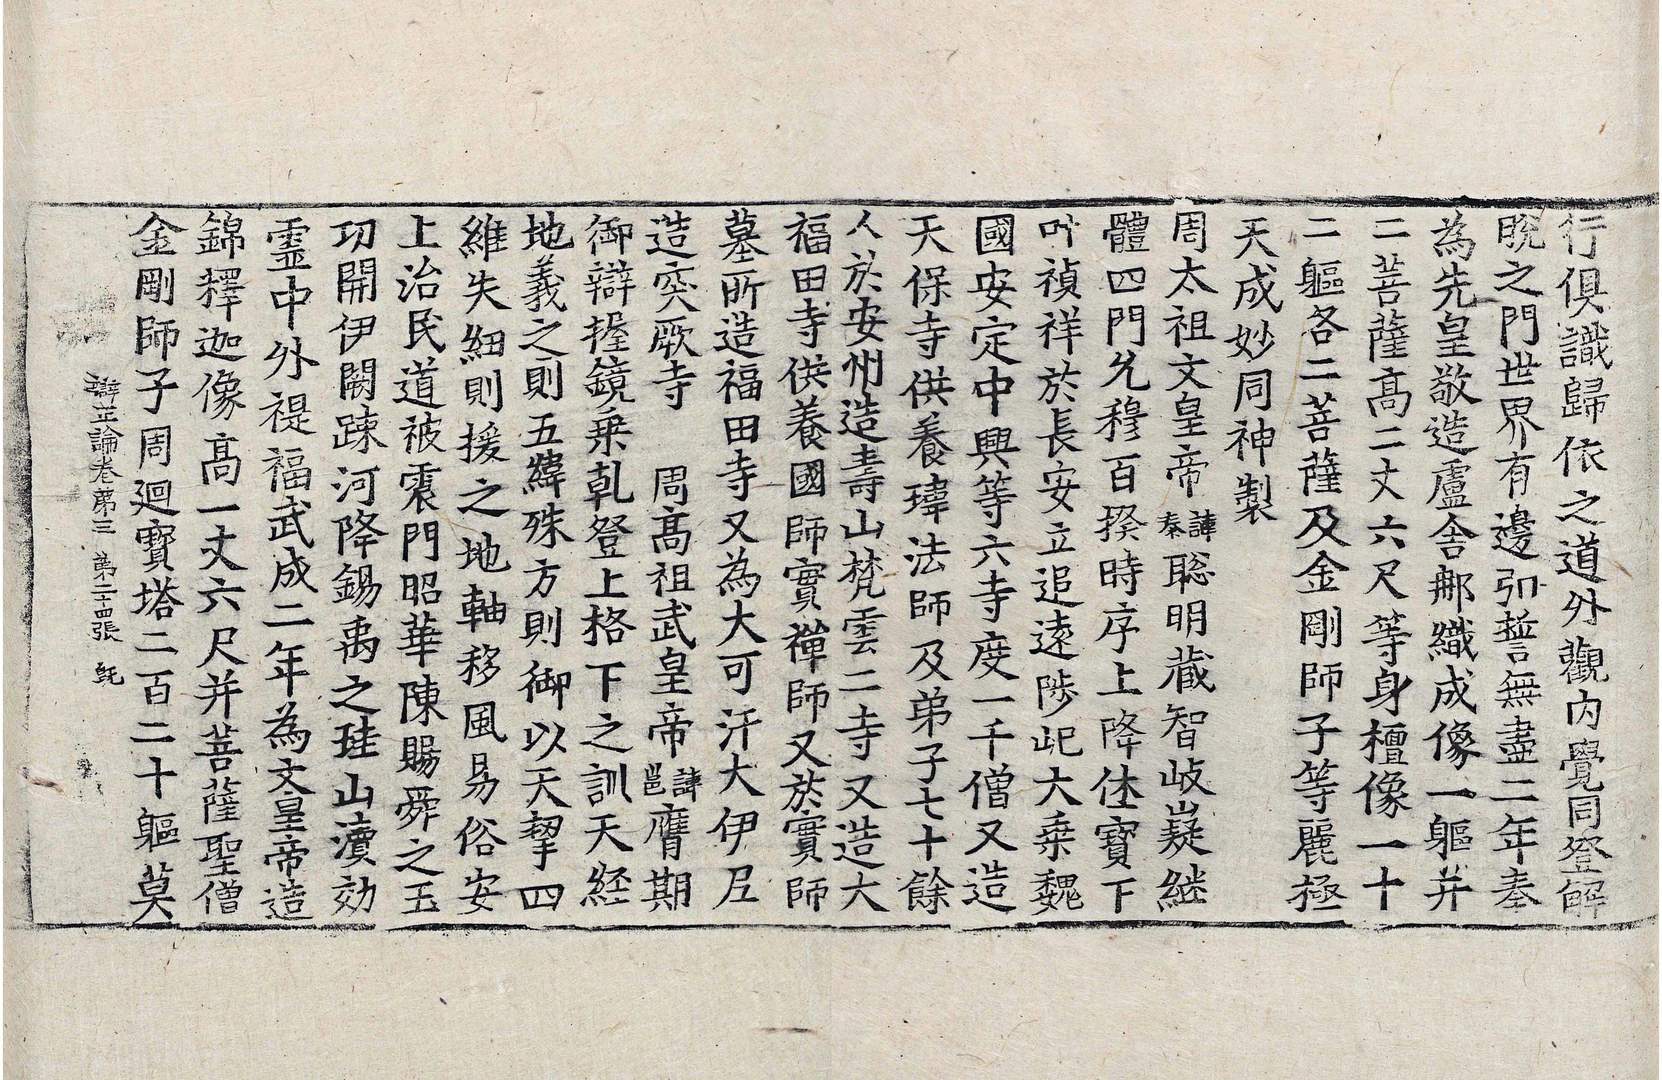 行俱識歸依之道外觀內覺同登解
脫之門世界有邊引誓無盡二年奉
為先皇敬造盧舍那織成像一軀并
二菩薩高二丈六尺等身檀像一十
二軀各二菩薩及金剛師子等麗極
天成妙同神製
周太祖文皇帝諱泰聡明蔵智岐嶷継
體四門允穆百揆時序上降休寶下
叶禎祥於長安立追遠陟屺大乗魏
國安定中興等六寺度一千僧又造
天保寺供養瑋法師及弟子七十餘
人於安州造壽山梵雲二寺又造大
福田寺供養國師實禪師又於實師
墓所造福田寺又為大可汗大伊尼
造突厥寺　周高祖武皇帝諱邕膺期
御辯握鏡乗乹登上格下之訓天経
地義之則五緯殊方則御以天挈四
維失紐則援之地軸移風易俗安
上治民道被震門昭華陳賜舜之玉
功開伊闕踈河降錫禹之珪山瀆効
霊中外禔福武成二年為文皇帝造
錦釋迦像高一丈六尺并菩薩聖僧
金剛師子周迴寳塔二百二十軀莫
辯正論卷苐三　苐二十四張